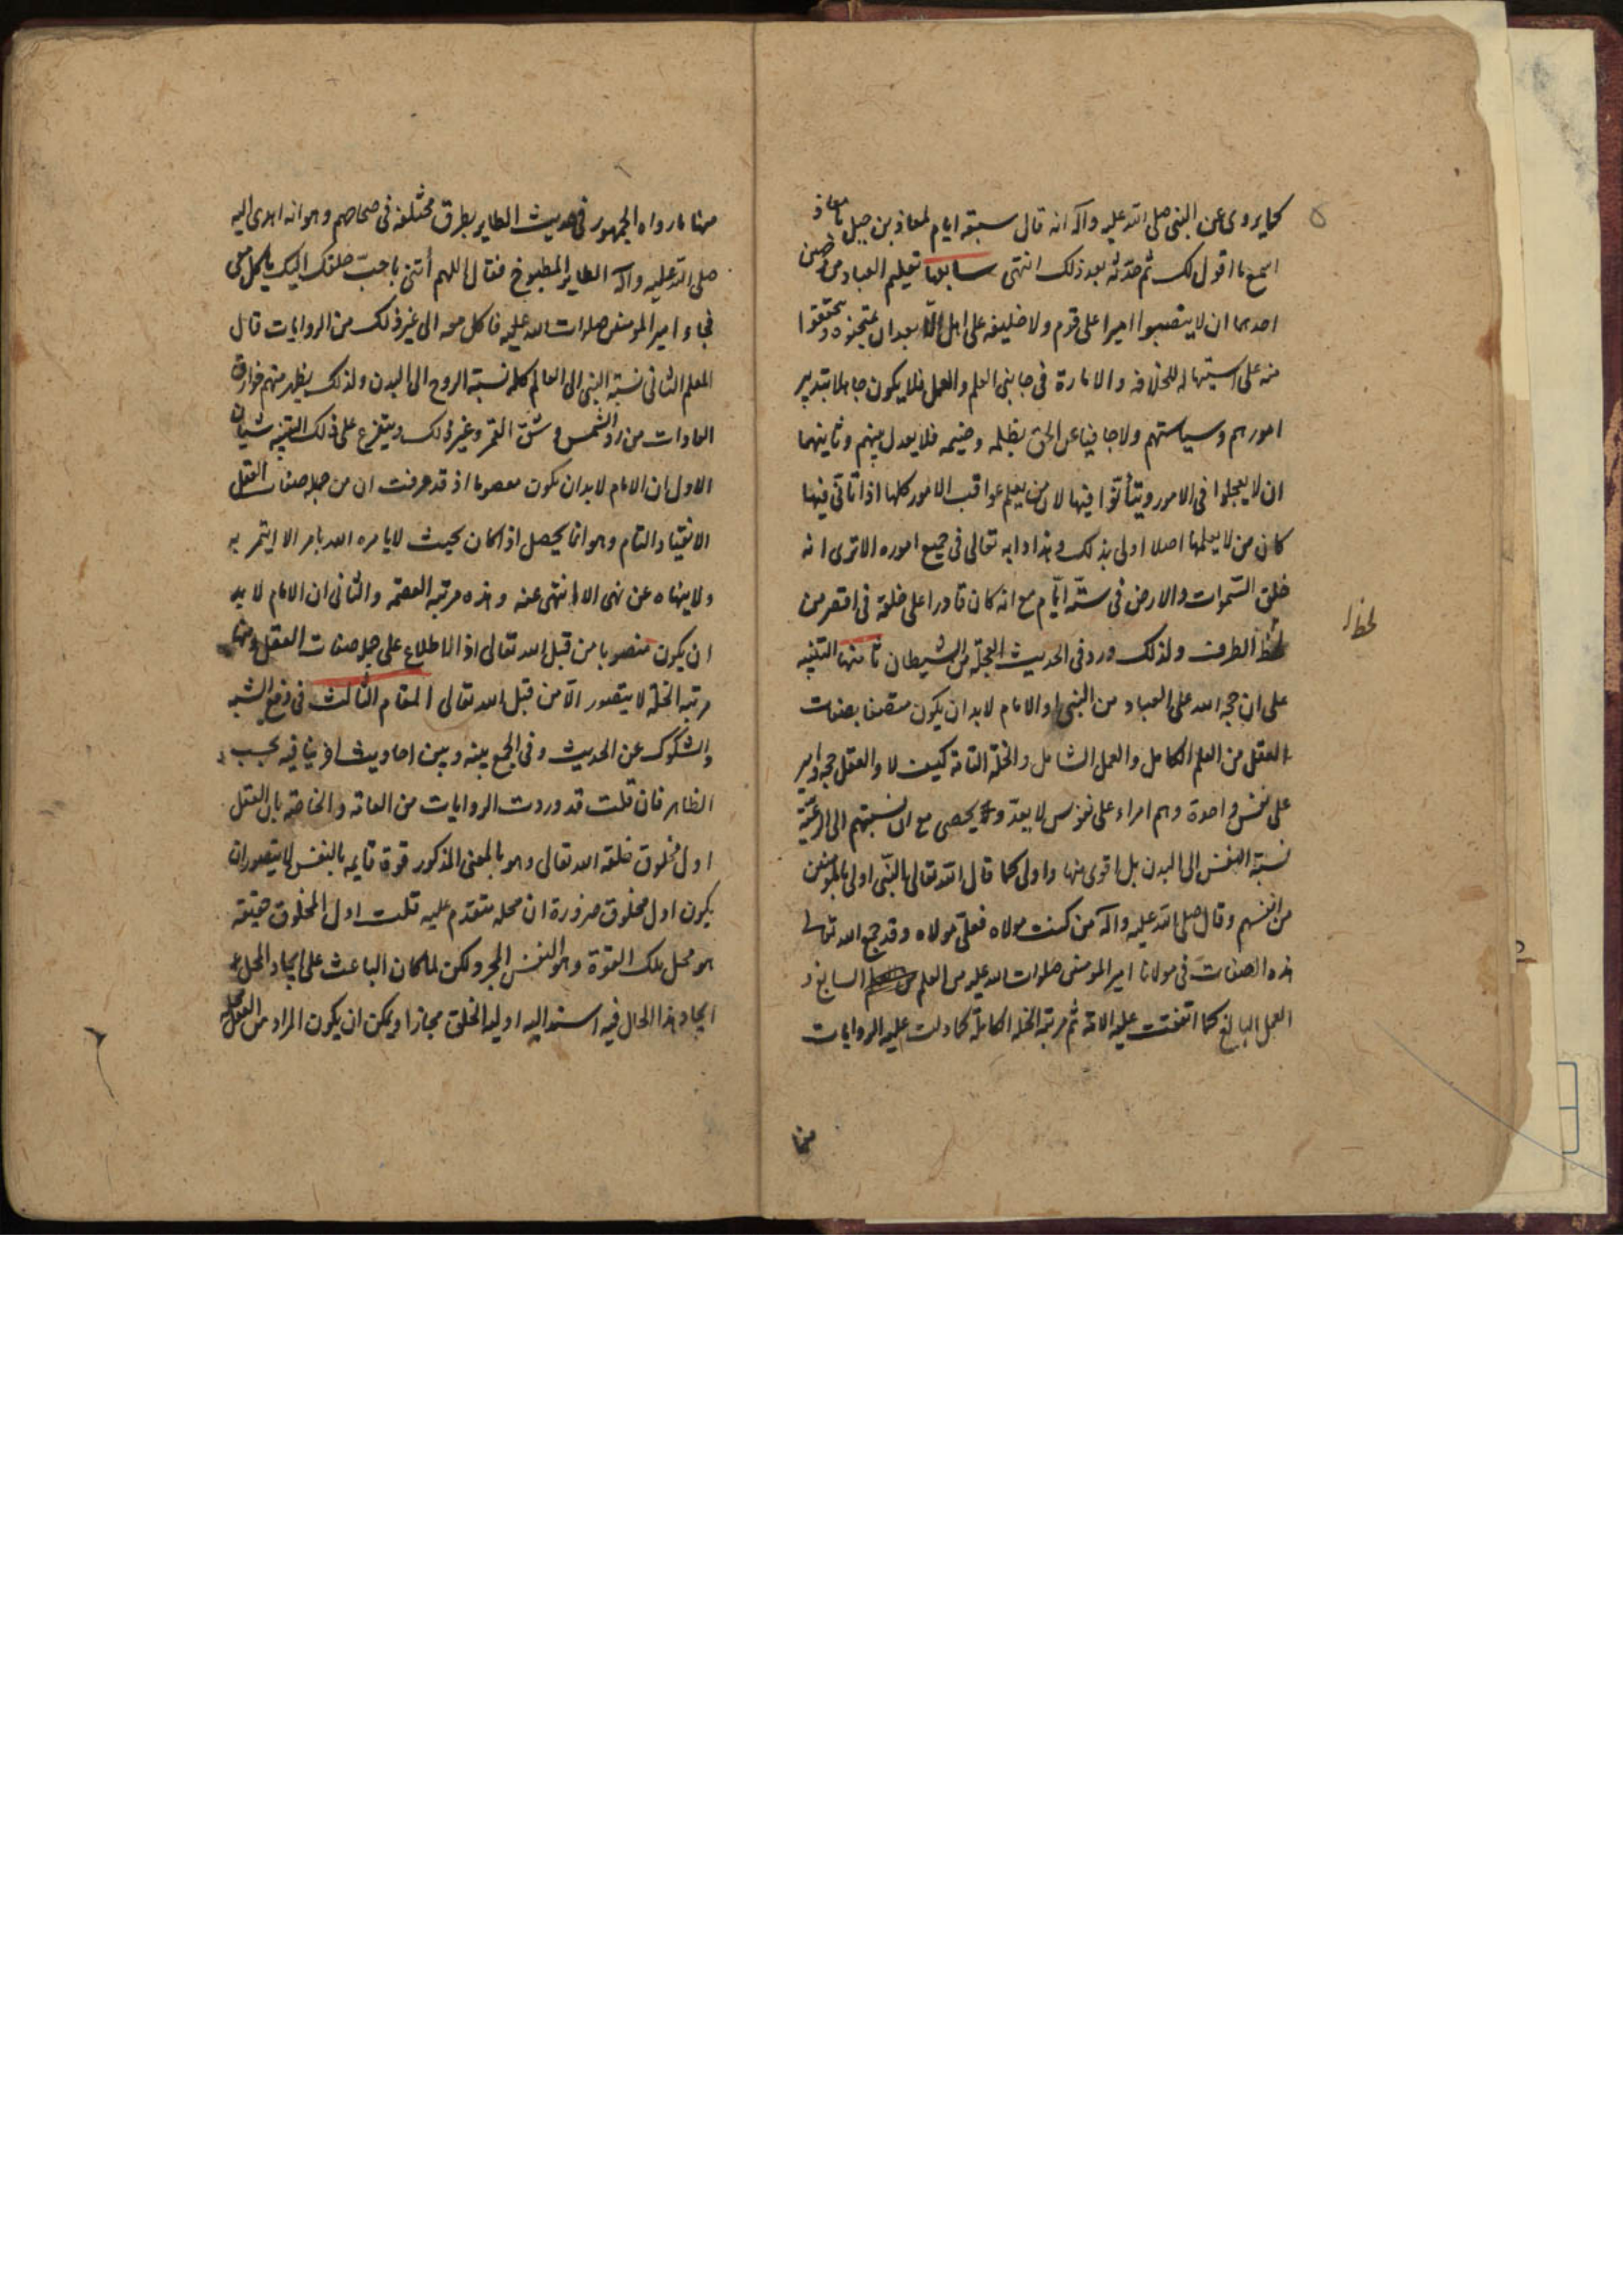 كما يروى عن النبي صلى الله عليه وآله انه قال سبقه ايام لمعاذ بن جبل يا معاذ
اسمع ما اقول لك ثم حدثه بعد ذلك انتهى سابعها تعليم العباد من
احدهما ان لا ينصبوا اميرا على قوم ولا خليفه على اهل الا بعد ان يمتحنوه ويحققوا
منه على استيهاله للخلافه والامارة فى جانبى العلم والعمل فلا يكون جاهلا بتدبير
امورهم وسياستهم ولا جافيا عن الحق بظلمه وضيمه فلا يعدل بينهم وثانيهما
ان لا يعجلوا فى الامور ويتأنوا فيها لان من يعلم عواقب الامور كلها اذا تأتى فيها
كان من لا يعلمها اصلا اولى بذلك وهذا دابه تعالى فى جميع اموره الا ترى انه
خلق السموات والارض فى ستة ايام مع انه كان قادرا على خلقه فى اقصر من
لحظ الطرف ولذلك ورد فى الحديث العجلة من الشيطان ثامنها التنبيه
لحظ
على ان حجه الله على العباد من النبى والامام لا بد ان يكون متصفا بصفات
العقل من العلم الكامل والعمل الشامل والخلة التامة كيف لا والعقل حجه وامير
على نفس واحدة وهم امراء على نفوس لا يعد ولا يحصى مع ان نسبتهم الى الرعية
نسبة النفس الى البدن بل اقوى منها واولى كما قال الله تعالى النبى اولى بالمؤمنين
من انفسهم وقال صلى الله عليه وآله من كنت مولاه فعلى مولاه وقد جمع الله تعالى
هذه الصفات فى مولانا امير المومنين صلوات الله عليه من العلم السابغ و
العمل البالغ كما اتفقت عليه الامة ثم مرتبة الخله الكاملة كما دلت عليه الروايات
منها
منها ما رواه الجمهور فى حديث الطاير بطرق مختلفه فى صحاحهم وهو انه اهدى اليه
صلى الله عليه وآله الطاير المطبوخ فقال اللهم أتنى باحب خلقك اليك ياكل معى
فجاء امير المومنين صلوات الله عليه فاكل معه الى غير ذلك من الروايات قال
المعلم الثانى نسبة النبى الى العالم كله نسبة الروح الى البدن ولذلك يظهر منهم خوارق
العادات من رد الشمس وشق القمر وغير ذلك ويتفرع على ذلك التنبيه شيئان
الاول ان الامام لا بد ان يكون معصوما اذ قد عرفت ان من جمله صفات العقل
الانقياد التام وهو انما يحصل اذا كان بحيث لا يامره الله بامر الا ايتمر به
ولا ينهاه عن نهى الا انتهى عنه وهذه مرتبه العصمة والثانى ان الامام لا بد
ان يكون منصوبا من قبل الله تعالى اذ الاطلاع على جل صفات العقل ومنها
مرتبه الخلة لا يتصور الا من قبل الله تعالى المقام الثالث فى دفع الشبه
والشكوك عن الحديث وفى الجمع بينه وبين احاديث اخر ينافيه بحسب
الظاهر فان قلت قد وردت الروايات من العامة والخاصة بان العقل
اول مخلوق خلقه الله تعالى وهو بالمعنى المذكور قوة قايمه بالنفس لا يتصور ان
يكون اول مخلوق ضرورة ان محله متقدم عليه قلت اول المخلوق حقيقه
هو محل تلك القوة وهو النفس المجرد لكن لما كان الباعث على ايجاد المحل
ايجاد هذا الحال فيه اسند اليه اوليه الخلق مجازا ويمكن ان يكون المراد من العقل